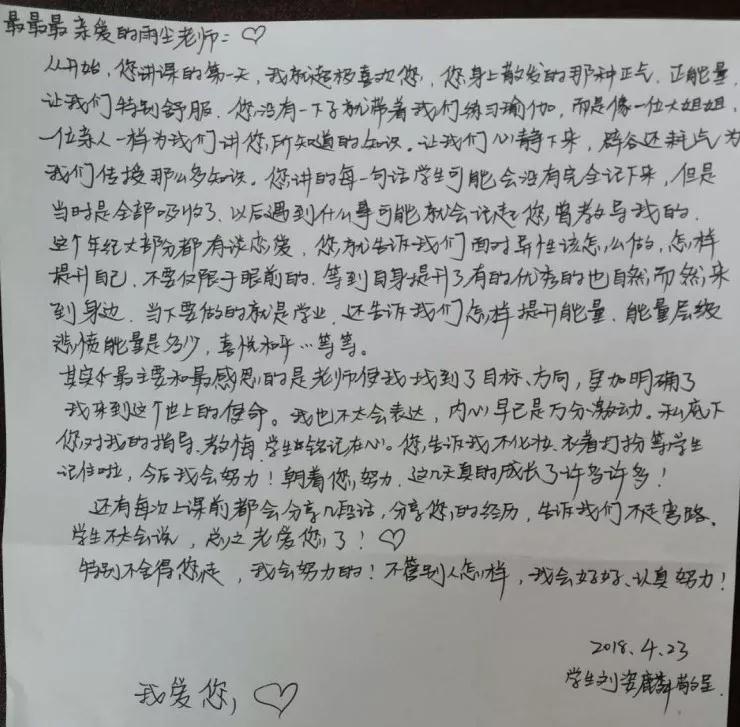 最最最亲爱的雨尘老师：♡
从开始，您讲课的第一天，我就超极喜欢您，您身上散发的那种正气，正能量，
让我们特别舒服。您没有一下子就带着我们练习瑜伽，而是像一位大姐姐，
一位亲人一样为我们讲您所知道的知识。让我们心静下来，辟谷还耗气为
我们传授那么多知识。您讲的每一句话学生可能会没有完全记下来，但是
当时是全部吸收了，以后遇到什么事可能就会记起您曾教导我的。
这个年纪大部分都有谈恋爱，您就告诉我们面对异性该怎么做，怎样
提升自己，不要仅限于眼前的，等到自身提升了有的优秀的也自然而然来
到身边，当下要做的就是学业，还告诉我们怎样提升能量，能量层级
悲愤能量是多少，喜悦和平…等等。
其实最主要和最感恩的是老师使我找到了目标、方向，更加明确了
我来到这个世上的使命。我也不太会表达，内心早已是万分激动。私底下
您对我的指导、教悔，学生铭记在心。您告诉我不化妆、衣着打扮等学生
记住啦，今后我会努力！朝着您努力，这几天真的成长了许多许多！
还有每次上课前都会分享几段话，分享您的经历，告诉我们不走弯路。
学生不太会说，总之老爱您了！♡
特别不舍得您走，我会努力的！不管别人怎样，我会好好、认真努力！
2018.4.23
学生刘姿麟敬呈
我爱您，♡